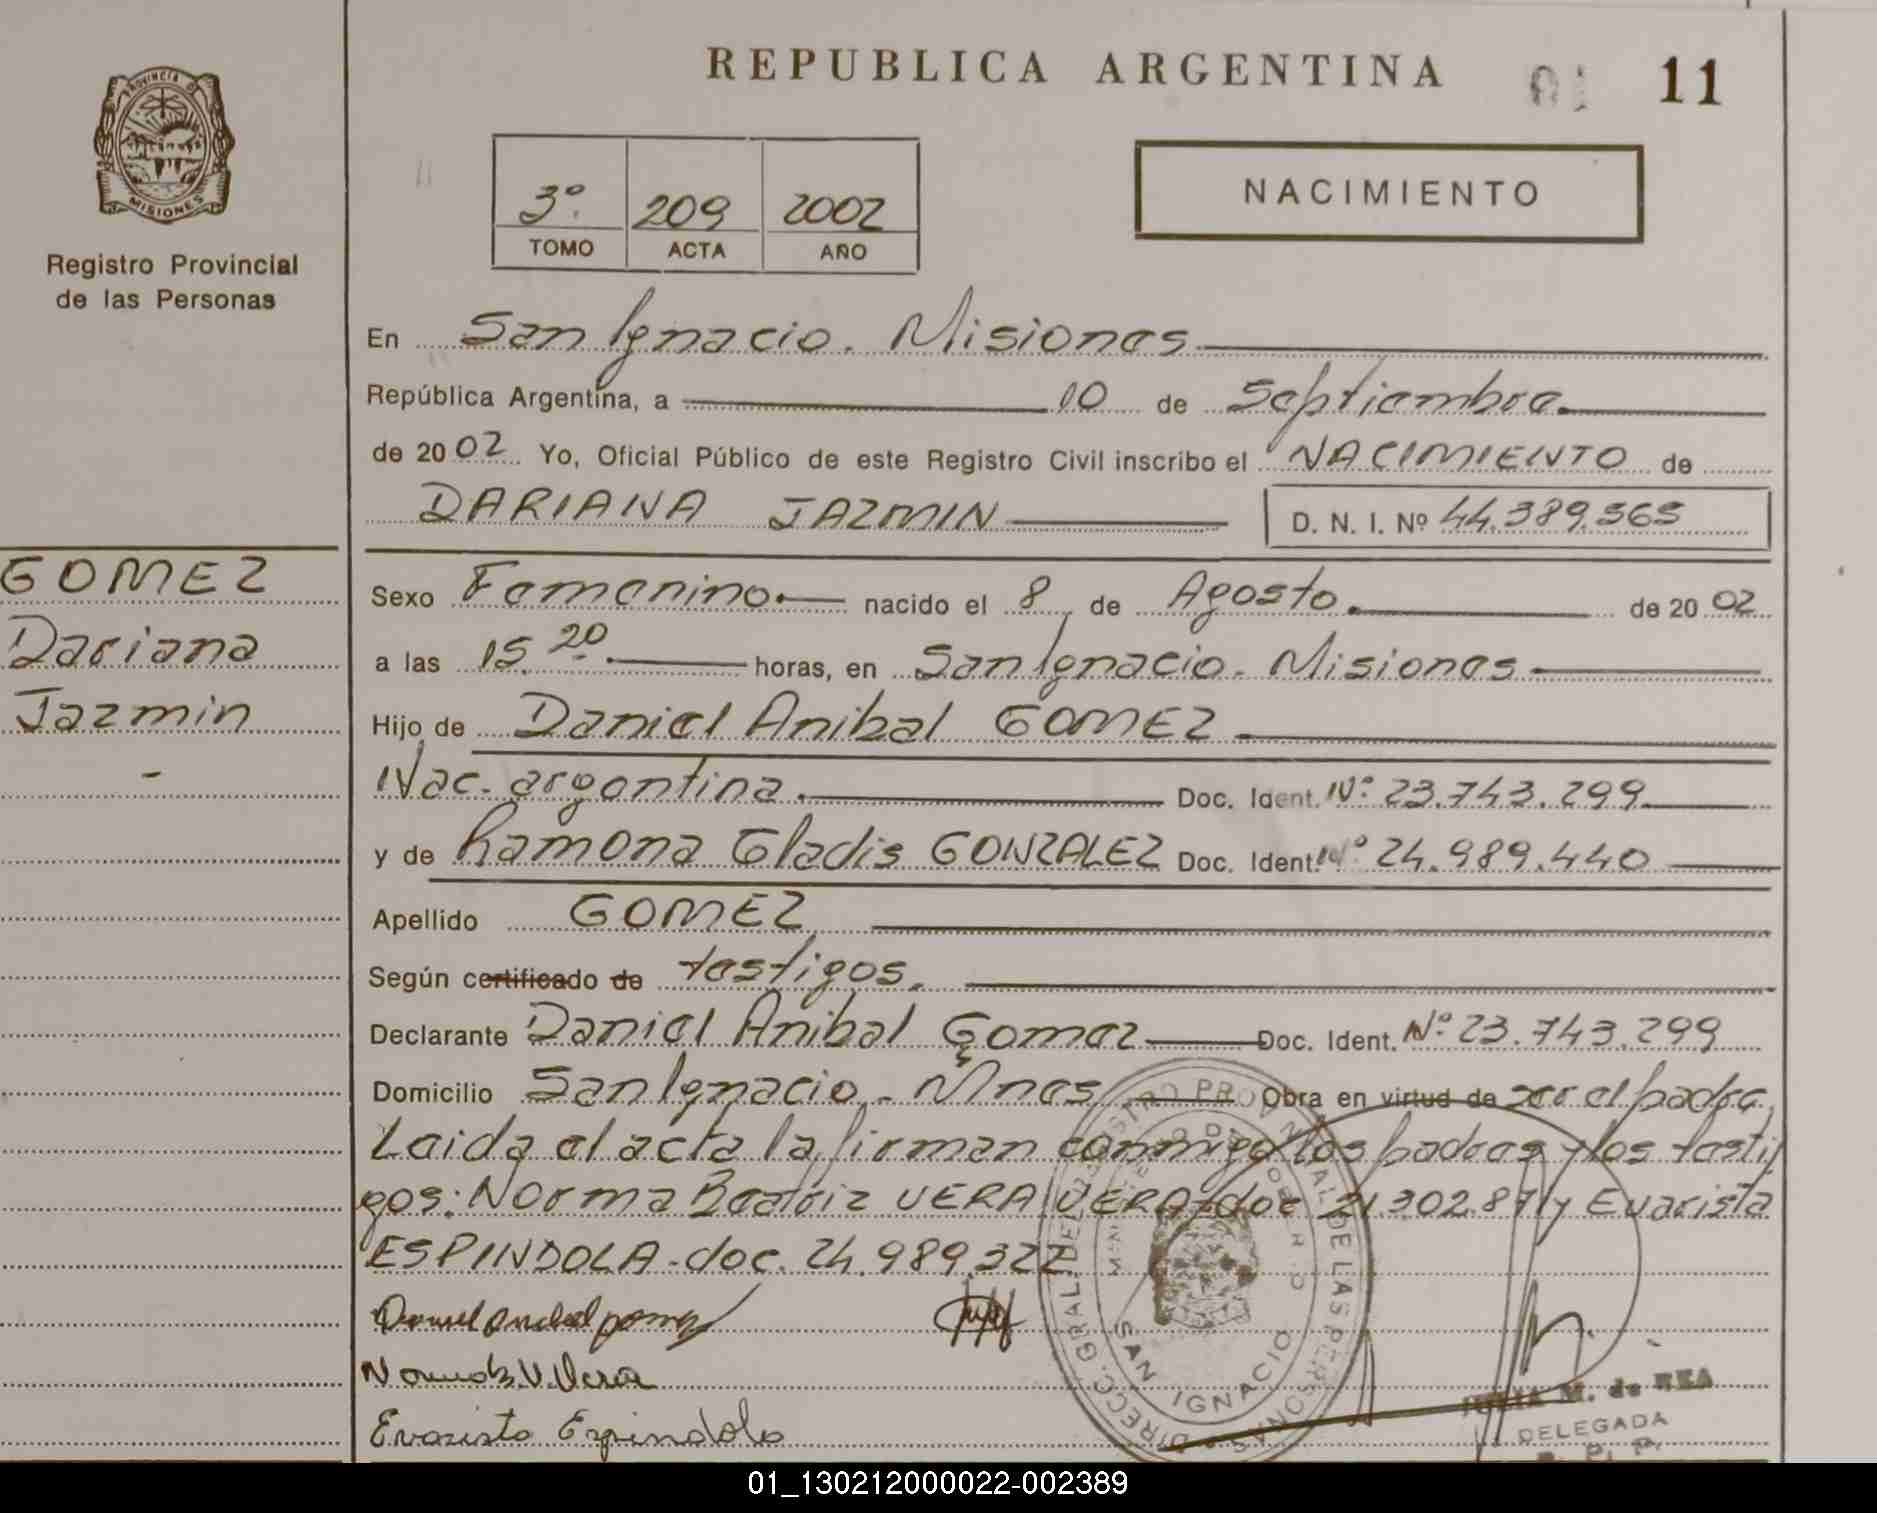 REPUBLICA ARGENTINA
01 11
PROVINCIA D
MISIONES
Registro Provincial
de las Personas
3º 209 2002
TOMO ACTA AÑO
NACIMIENTO
En San Ignacio. Misiones
República Argentina, a 10 de Septiembre.
de 2002 Yo, Oficial Público de este Registro Civil inscribo el NACIMIENTO de
DARIANA JAZMIN D. N. I. Nº 44.389.565
GOMEZ
Dariana
Jazmin
-
Sexo Femenino. nacido el 8 de Agosto. de 2002
a las 15.20 horas, en San Ignacio. Misiones
Hijo de Daniel Anibal GOMEZ
Nac. argentina. Doc. Ident. Nº 23.743.299
y de Ramona Gladis GONZALEZ Doc. Ident. Nº 24.989.440
Apellido GOMEZ
Según certificado de testigos.
Declarante Daniel Anibal Gomez Doc. Ident. Nº 23.743.299
Domicilio San Ignacio - Mnes Obra en virtud de ser el padre,
Leida el acta la firman conmigo los padres y los testi
gos: Norma Beatriz VERA VERA doc 21.302.871 y Evarista
ESPINDOLA - doc. 24.989.322
Daniel Anibal gomez
Norma B. V. Vera
Evarista Espindola
DIRECC. GRAL. DEL REGISTRO PROVINCIAL DE LAS PERSONAS
SAN IGNACIO
JULIA M. de REA
DELEGADA
R. P. P.
01_130212000022-002389